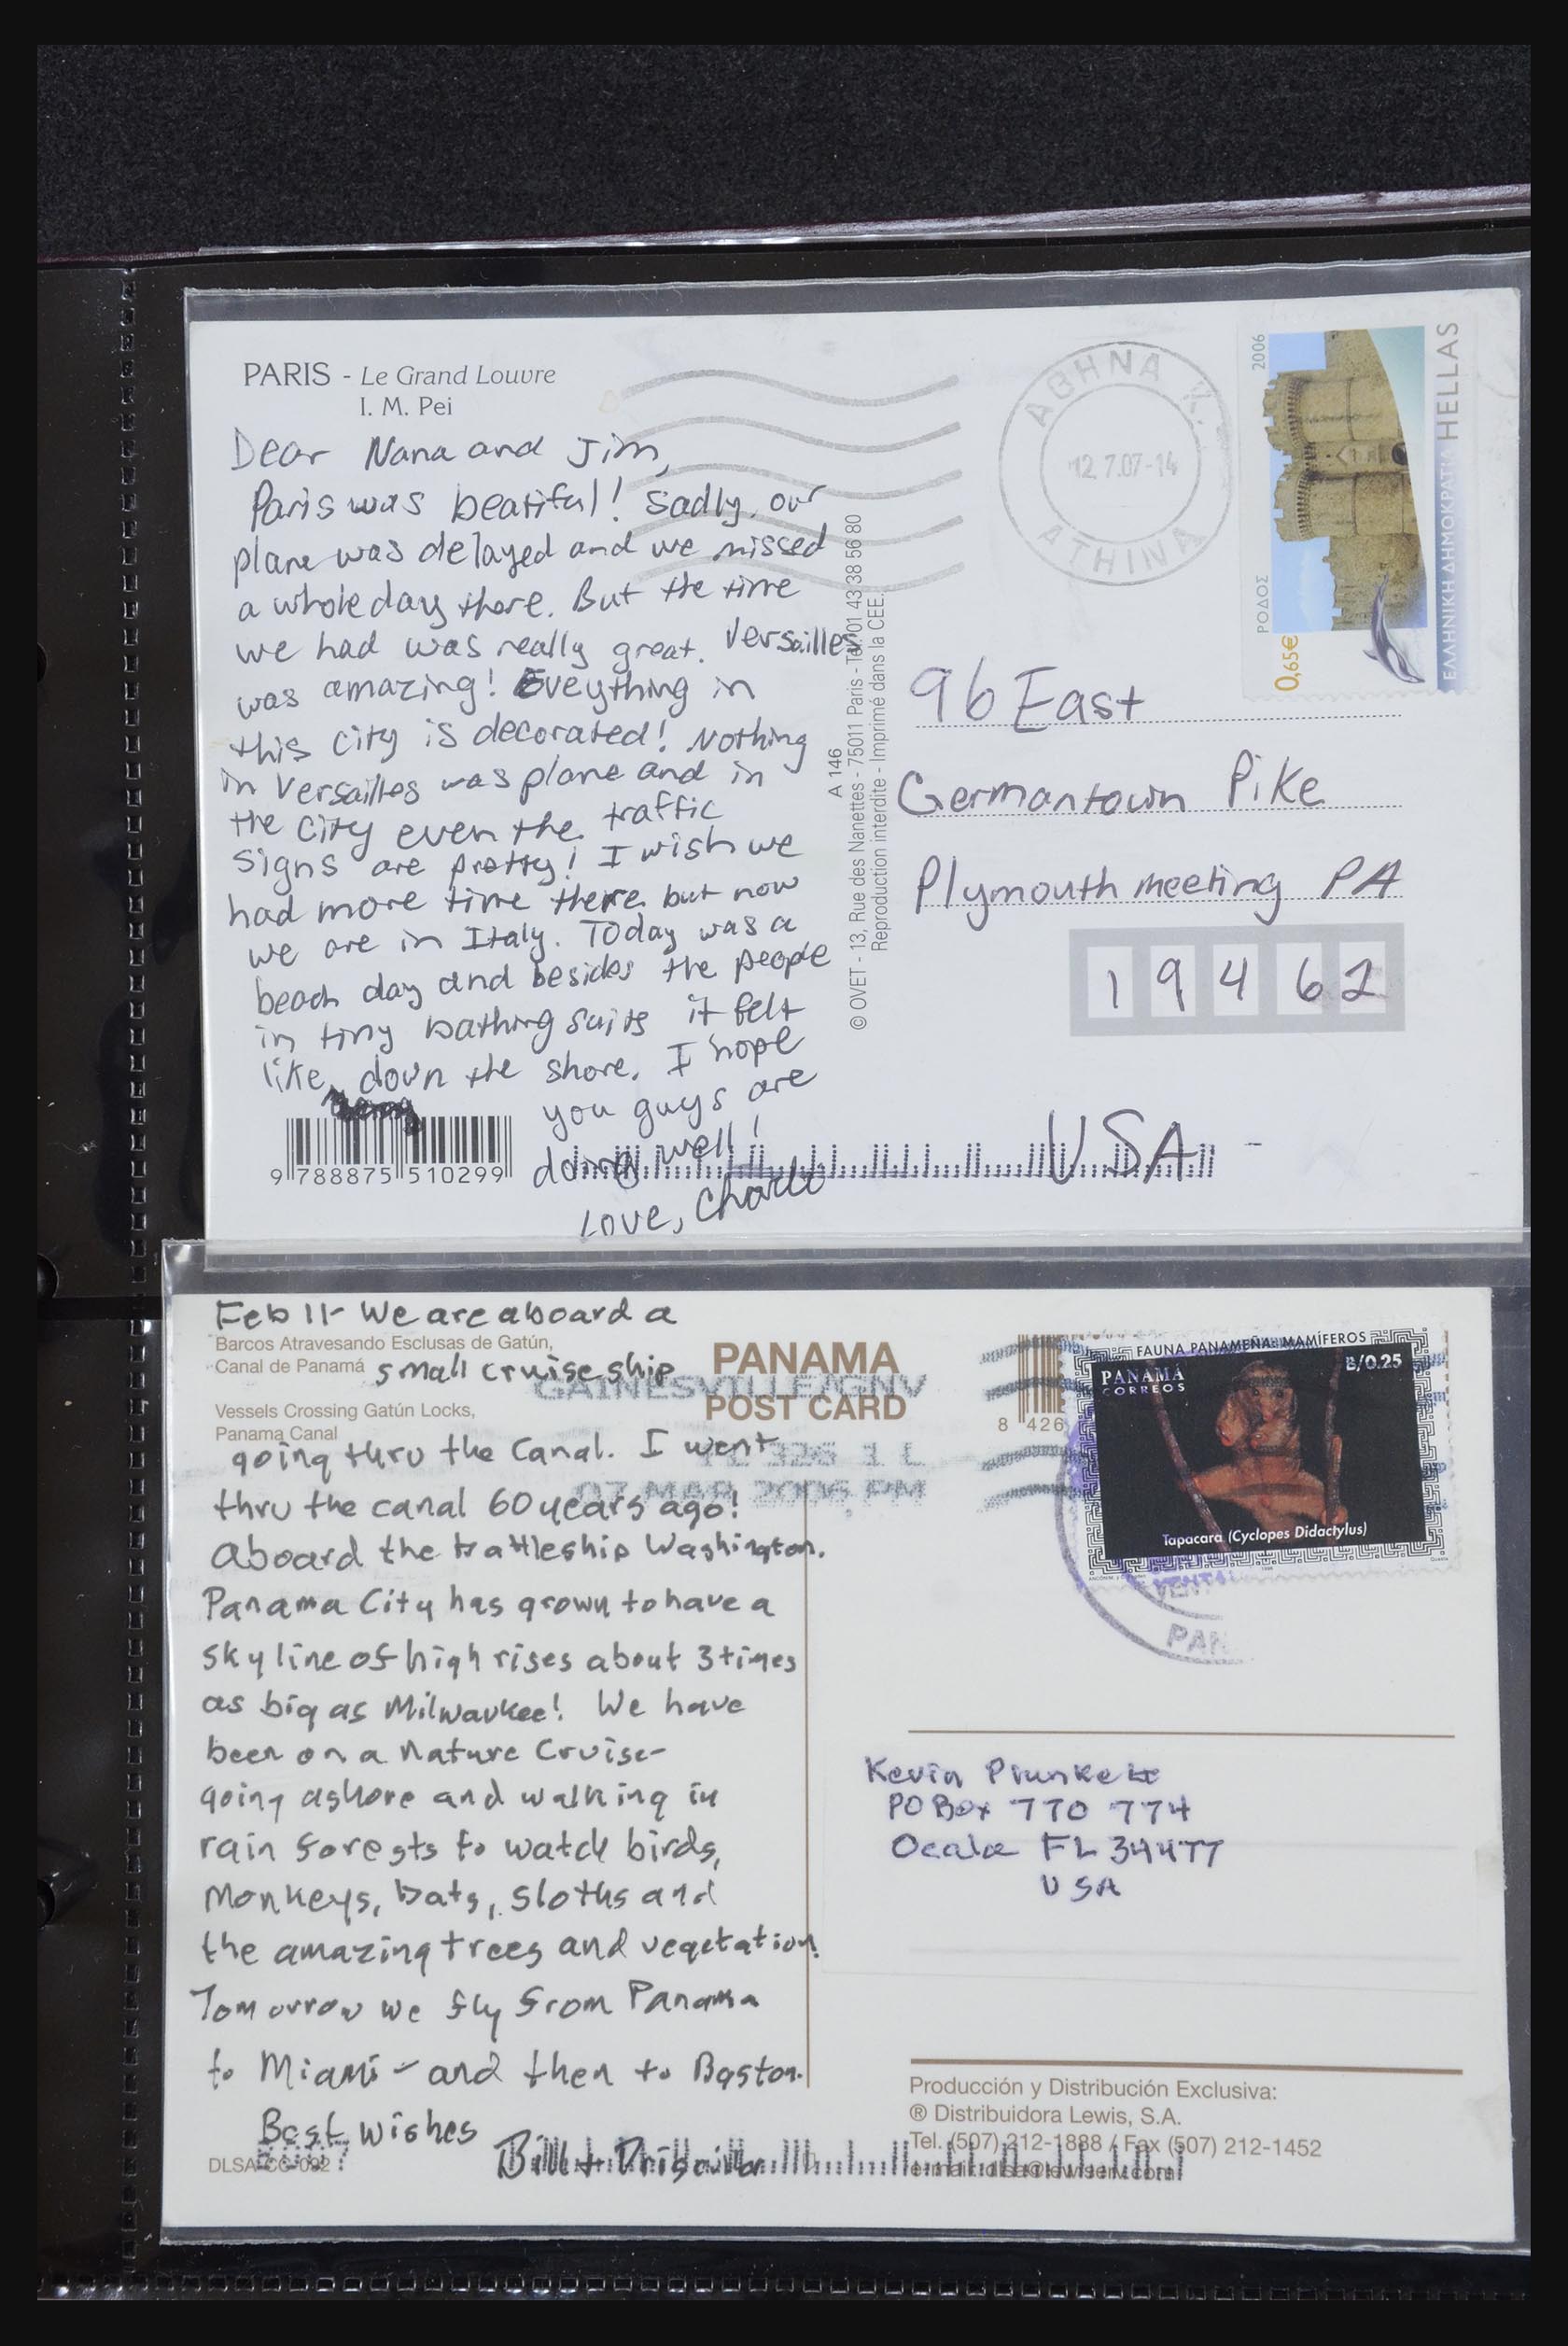 PARIS - Le Grand Louvre
I. M. Pei
Dear Nana and Jim,
Paris was beatiful! Sadly, our
plane was delayed and we missed
a whole day there. But the time
we had was really great. Versailles
was amazing! Eveything in
this city is decorated! Nothing
in Versailles was plane and in
the city even the traffic
signs are pretty! I wish we
had more time there but now
we are in Italy. Today was a
beach day and besides the people
in tiny bathing suits it felt
like down the shore. I hope
you guys are
doing well!
Love,
9 788875 510299
© OVET - 13, Rue des Nanettes - 75011 Paris - Tél. 01 43 38 56 80
Reproduction interdite - Imprimé dans la CEE.
A 146
ΑΘΗΝΑ
12.7.07-14
ATHINA
2006
ΡΟΔΟΣ
0,65€
ΕΛΛΗΝΙΚΗ ΔΗΜΟΚΡΑΤΙΑ HELLAS
96 East
Germantown Pike
Plymouth meeting PA
19462
USA
Feb 11- We are aboard a
Barcos Atravesando Esclusas de Gatún,
Canal de Panamá
small cruise ship
Vessels Crossing Gatún Locks,
Panama Canal
going thru the Canal. I went
thru the canal 60 years ago!
aboard the battleship Washington.
Panama City has grown to have a
skyline of high rises about 3 times
as big as Milwaukee! We have
been on a nature cruise-
going ashore and walking in
rain forests to watch birds,
monkeys, bats, sloths and
the amazing trees and vegetation.
Tomorrow we fly from Panama
to Miami - and then to Boston.
Best wishes
Bill +
PANAMA
POST CARD
GAINESVILLE/GNV
FL 326 1 L
07 MAR 2006 PM
8 426
FAUNA PANAMEÑA: MAMÍFEROS
PANAMÁ
CORREOS
B/0.25
Tapacara (Cyclopes Didactylus)
PAN
Kevin Plunkett
PO Box 770 774
Ocala FL 34477
USA
Producción y Distribución Exclusiva:
® Distribuidora Lewis, S.A.
Tel. (507) 212-1888 / Fax (507) 212-1452